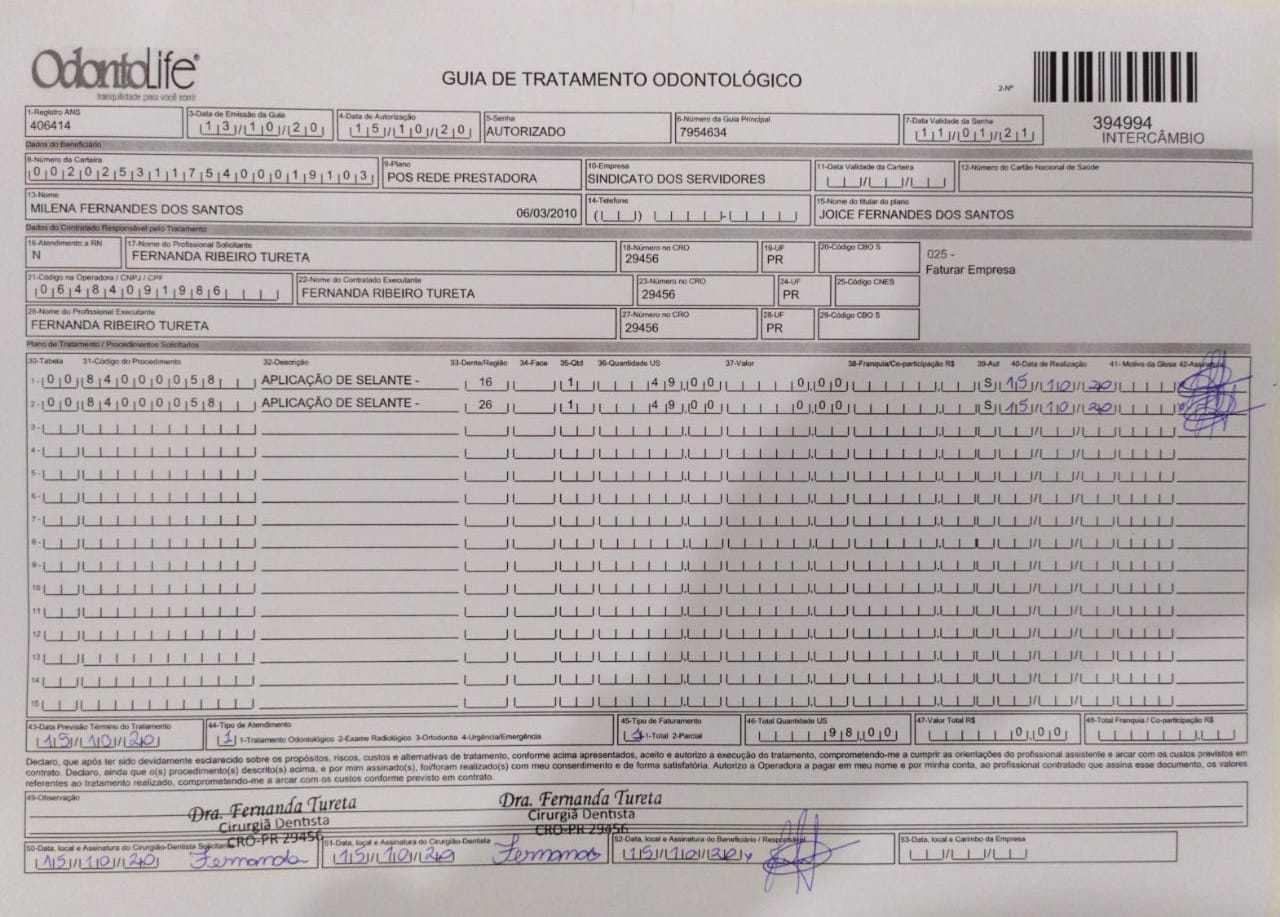 OdontoLife®
tranquilidade para você sorrir
GUIA DE TRATAMENTO ODONTOLÓGICO
2-Nº
394994
INTERCÂMBIO
1-Registro ANS
406414
3-Data de Emissão da Guia
13/10/20
4-Data de Autorização
15/10/20
5-Senha
AUTORIZADO
6-Número da Guia Principal
7954634
7-Data Validade da Senha
11/01/21
Dados do Beneficiário
8-Número da Carteira
00202531175400019103
9-Plano
POS REDE PRESTADORA
10-Empresa
SINDICATO DOS SERVIDORES
11-Data Validade da Carteira
12-Número do Cartão Nacional de Saúde
13-Nome
MILENA FERNANDES DOS SANTOS 06/03/2010
14-Telefone
15-Nome do titular do plano
JOICE FERNANDES DOS SANTOS
Dados do Contratado Responsável pelo Tratamento
16-Atendimento a RN
N
17-Nome do Profissional Solicitante
FERNANDA RIBEIRO TURETA
18-Número no CRO
29456
19-UF
PR
20-Código CBO S
025 -
Faturar Empresa
21-Código na Operadora / CNPJ / CPF
06484091986
22-Nome do Contratado Executante
FERNANDA RIBEIRO TURETA
23-Número no CRO
29456
24-UF
PR
25-Código CNES
26-Nome do Profissional Executante
FERNANDA RIBEIRO TURETA
27-Número no CRO
29456
28-UF
PR
29-Código CBO S
Plano de Tratamento / Procedimentos Solicitados
30-Tabela 31-Código do Procedimento 32-Descrição 33-Dente/Região 34-Face 35-Qtd 36-Quantidade US 37-Valor 38-Franquia/Co-participação R$ 39-Aut 40-Data de Realização 41- Motivo da Glosa 42-Assinatura
1- 00 84000058 APLICAÇÃO DE SELANTE - 16 1 49,00 0,00 S 15/10/20
2- 00 84000058 APLICAÇÃO DE SELANTE - 26 1 49,00 0,00 S 15/10/20
3-
4-
5-
6-
7-
8-
9-
10-
11-
12-
13-
14-
15-
43-Data Previsão Término do Tratamento
15/10/20
44-Tipo de Atendimento
1 1-Tratamento Odontológico 2-Exame Radiológico 3-Ortodontia 4-Urgência/Emergência
45-Tipo de Faturamento
1 1-Total 2-Parcial
46-Total Quantidade US
98,00
47-Valor Total R$
0,00
48-Total Franquia / Co-participação R$
Declaro, que após ter sido devidamente esclarecido sobre os propósitos, riscos, custos e alternativas de tratamento, conforme acima apresentados, aceito e autorizo a execução do tratamento, comprometendo-me a cumprir as orientações do profissional assistente e arcar com os custos previstos em
contrato. Declaro, ainda que o(s) procedimento(s) descrito(s) acima, e por mim assinado(s), foi/foram realizado(s) com meu consentimento e de forma satisfatória. Autorizo a Operadora a pagar em meu nome e por minha conta, ao profissional contratado que assina esse documento, os valores
referentes ao tratamento realizado, comprometendo-me a arcar com os custos conforme previsto em contrato.
49-Observação
Dra. Fernanda Tureta
Cirurgiã Dentista
CRO-PR 29456
Dra. Fernanda Tureta
Cirurgiã Dentista
CRO-PR 29456
50-Data, local e Assinatura do Cirurgião-Dentista Solicitante
15/10/20 Fernanda
51-Data, local e Assinatura do Cirurgião-Dentista
15/10/20 Fernanda
52-Data, local e Assinatura do Beneficiário / Responsável
15/10/20
53-Data, local e Carimbo da Empresa